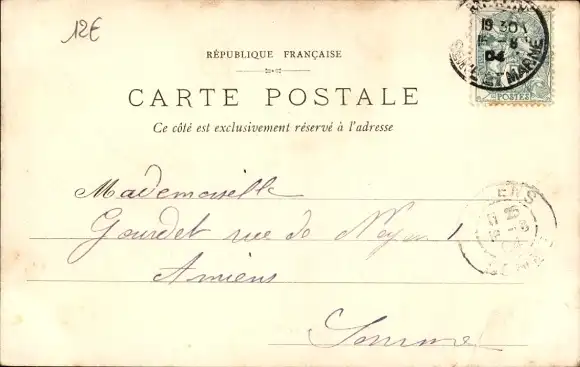 12€
RÉPUBLIQUE FRANÇAISE
CARTE POSTALE
Ce côté est exclusivement réservé à l'adresse
Mademoiselle
Gourdet rue de Noyon 1
Amiens
Somme
19 30
04
SEINE ET MARNE
POSTES